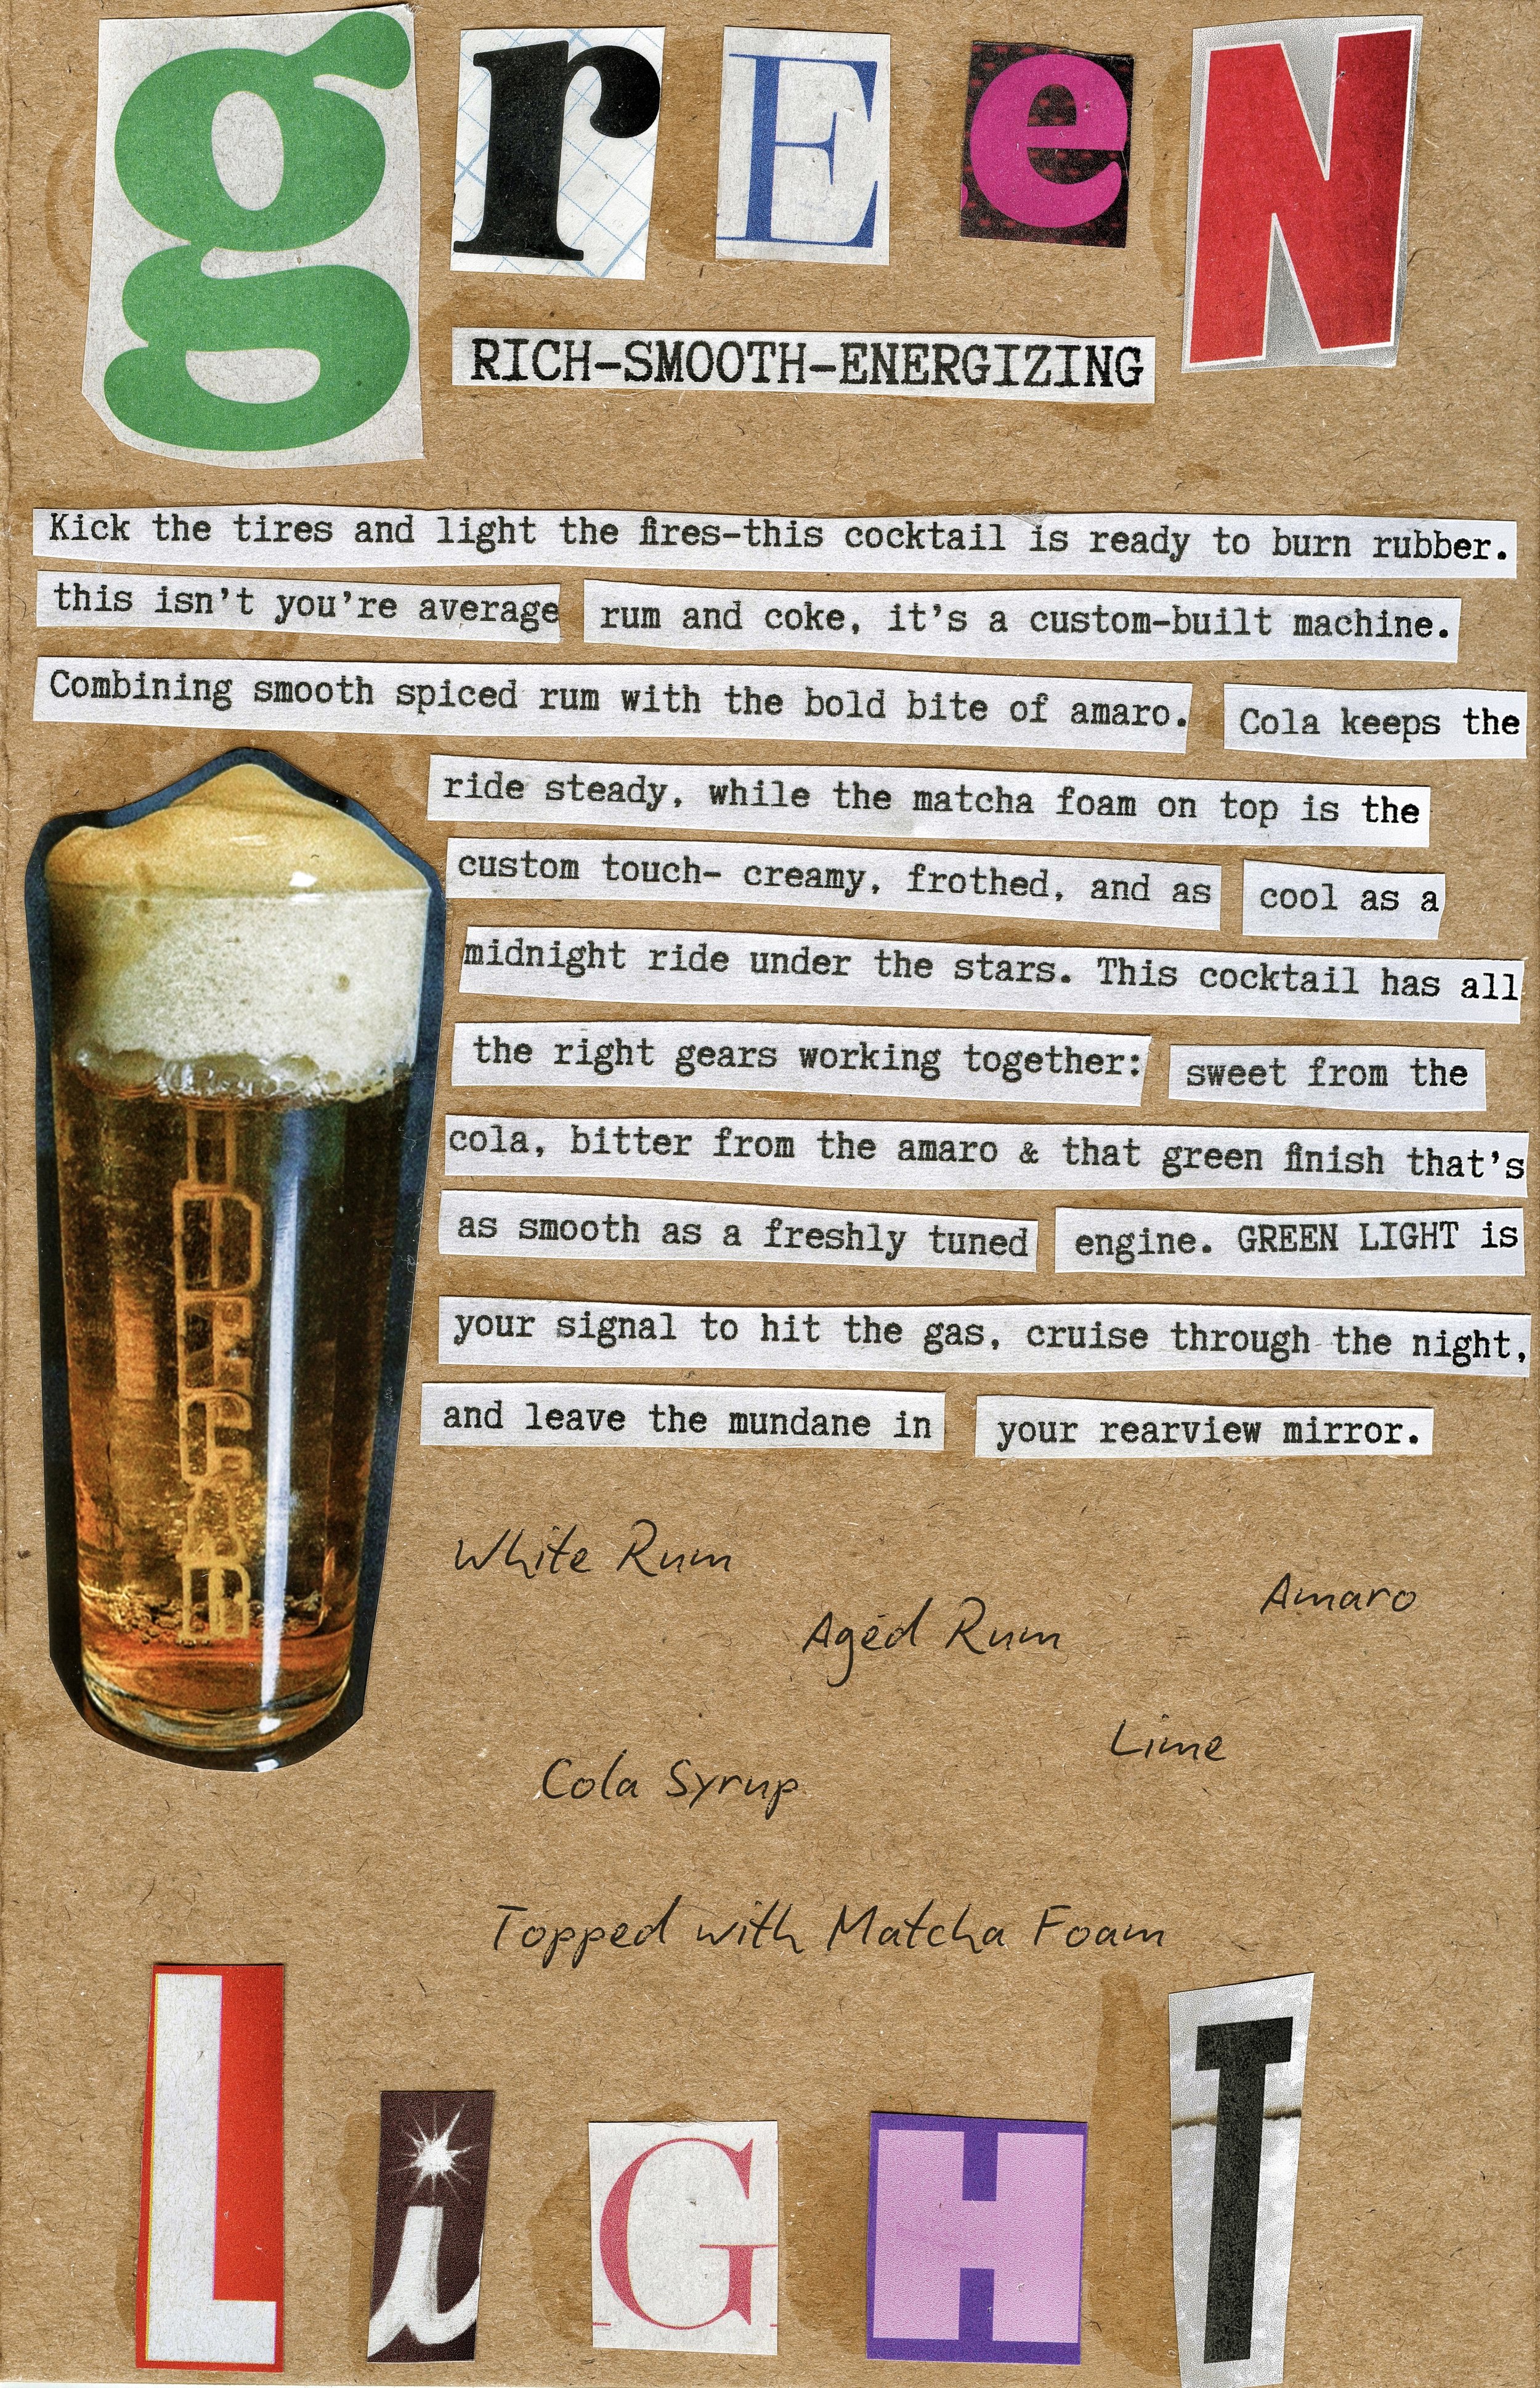 grEeN
RICH-SMOOTH-ENERGIZING
Kick the tires and light the fires-this cocktail is ready to burn rubber.
this isn't you're average rum and coke, it's a custom-built machine.
Combining smooth spiced rum with the bold bite of amaro. Cola keeps the
ride steady, while the matcha foam on top is the
custom touch- creamy, frothed, and as cool as a
midnight ride under the stars. This cocktail has all
the right gears working together: sweet from the
cola, bitter from the amaro & that green finish that's
as smooth as a freshly tuned engine. GREEN LIGHT is
your signal to hit the gas, cruise through the night,
and leave the mundane in your rearview mirror.
White Rum
Aged Rum
Amaro
Lime
Cola Syrup
Topped with Matcha Foam
LiGHT